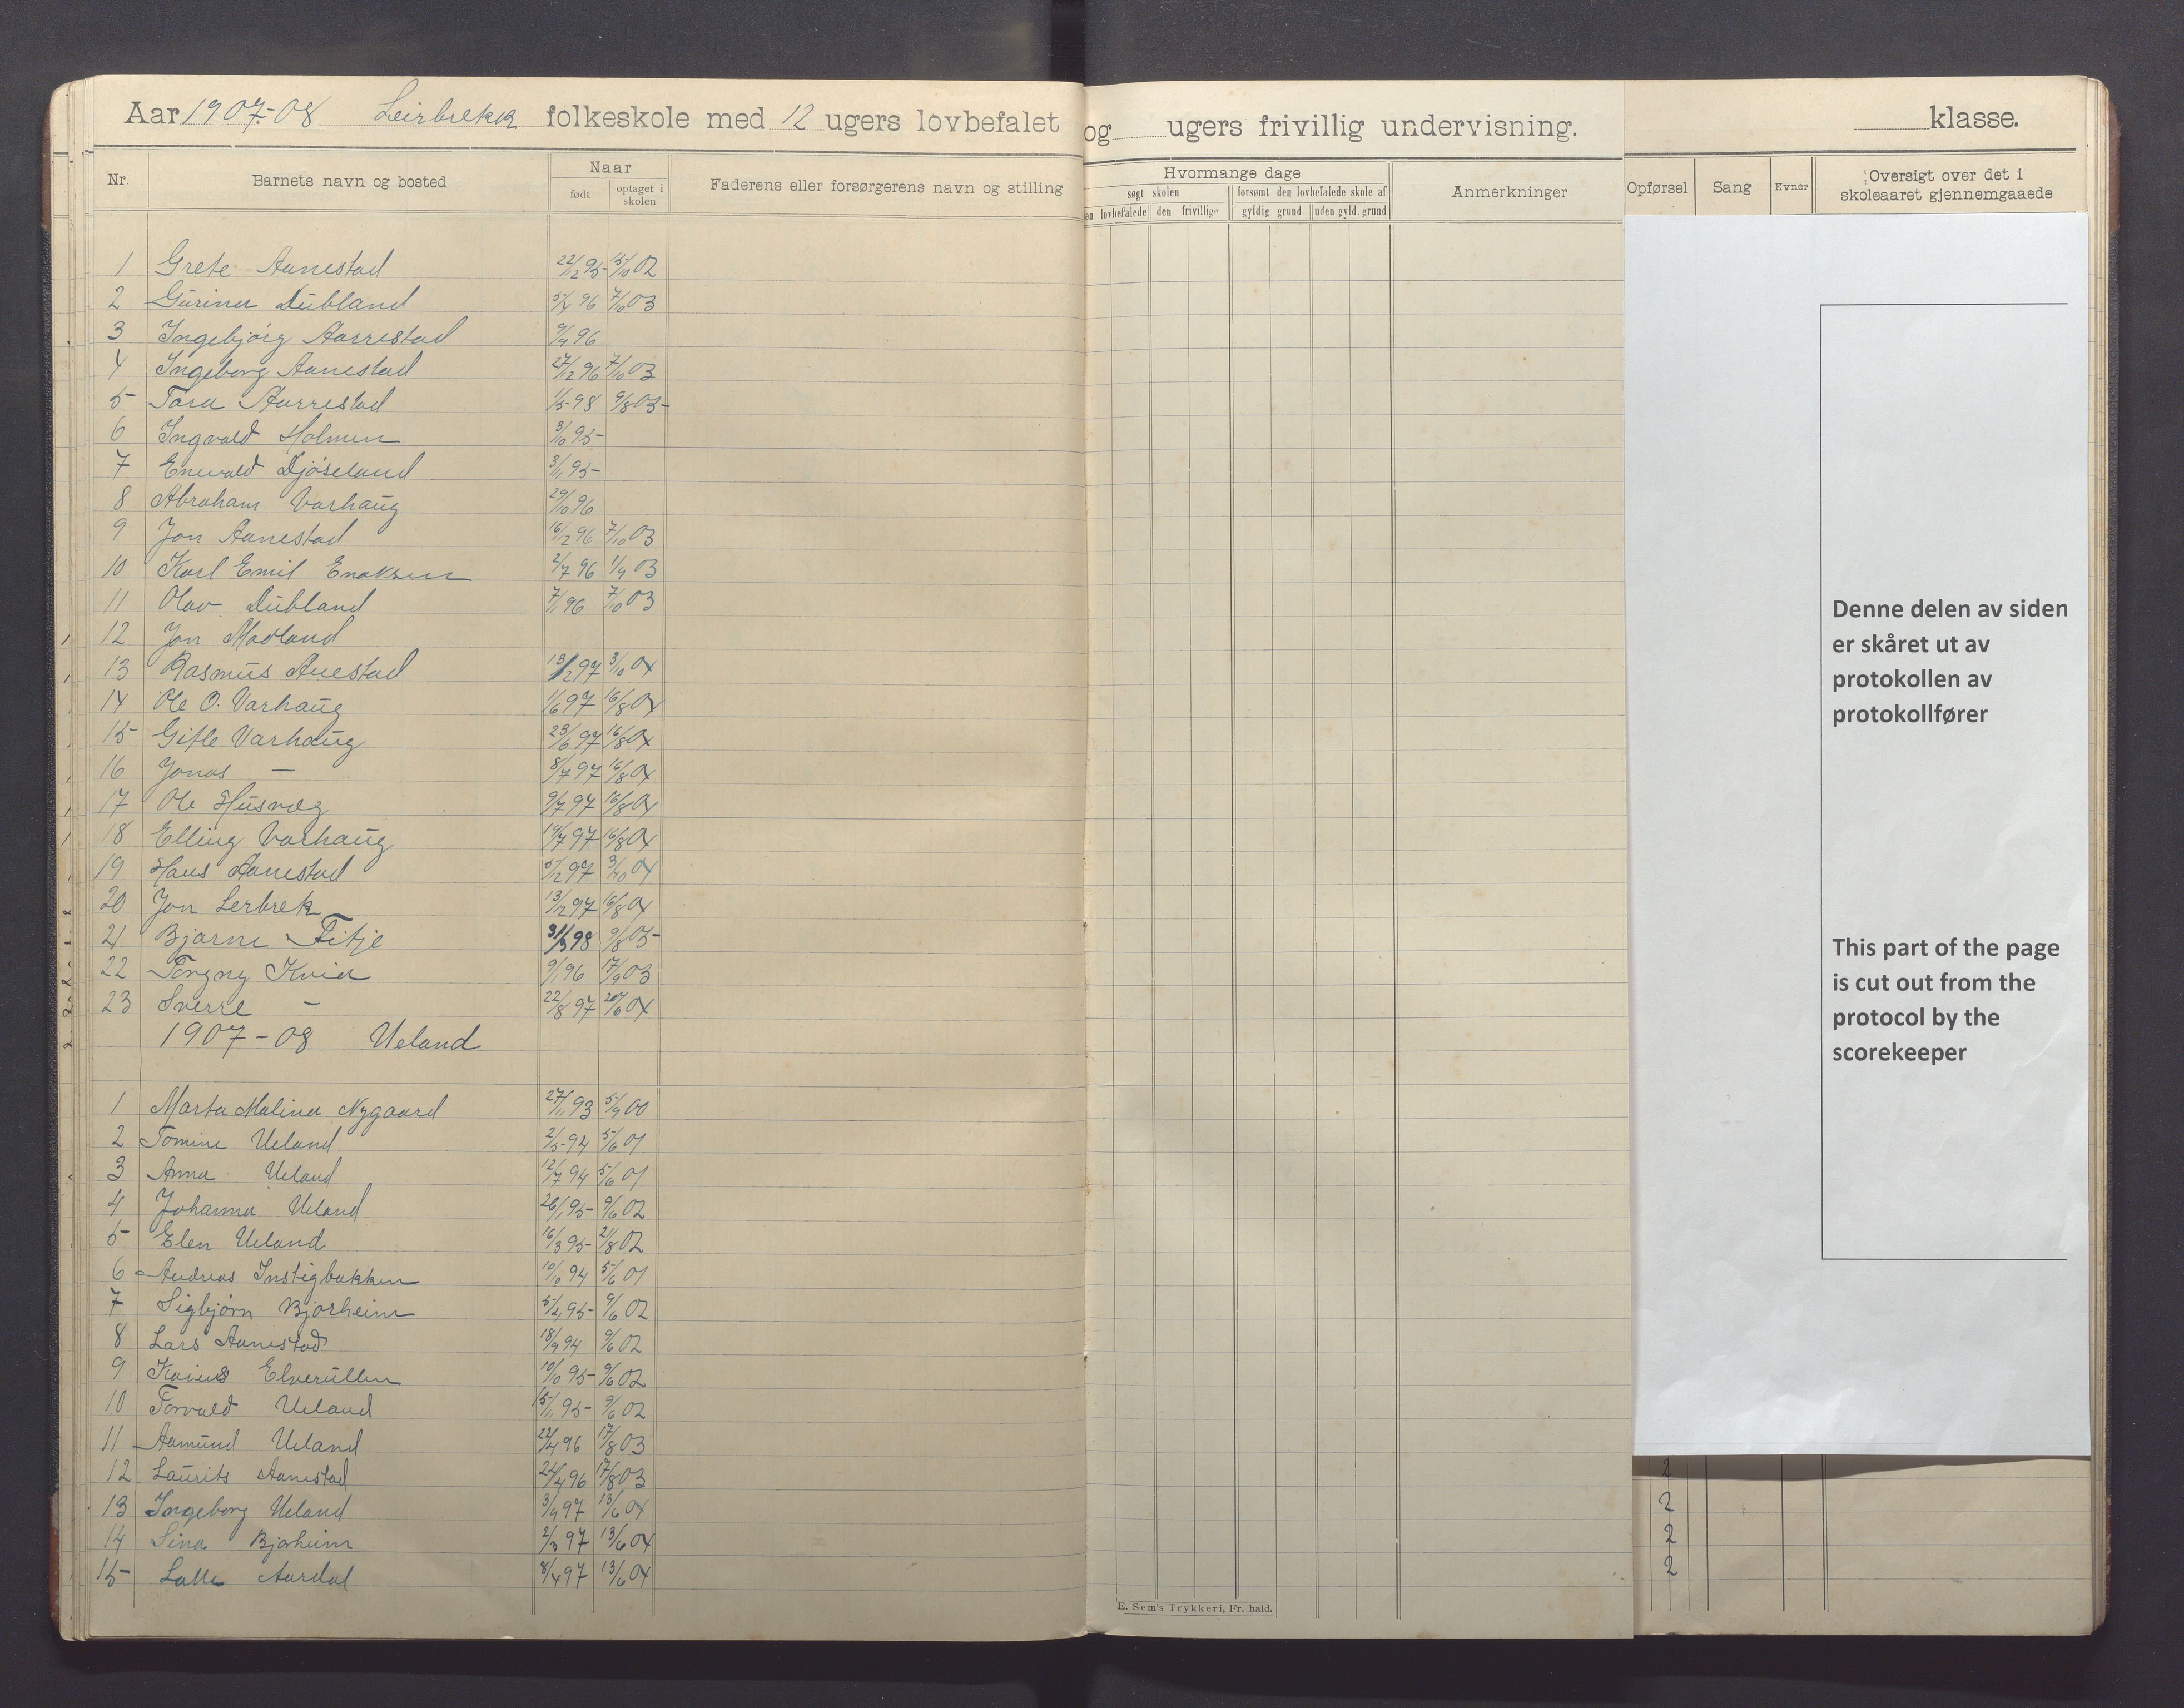 Aar 1907-08 Leirbrekk folkeskole med 12 ugers lovbefalet og ugers frivillig undervisning. klasse.
Nr. Barnets navn og bosted Naar født optaget i skolen Faderens eller forsørgerens navn og stilling Hvormange dage søgt skolen den lovbefalede den frivillige forsømt den lovbefalede skole af gyldig grund uden gyld. grund Anmerkninger Opførsel Sang Evner Oversigt over det i skoleaaret gjennemgaaede
1 Grete Aanestad 22/12 95 15/10 02
2 Gurine Dubland 5/4 96 7/10 03
3 Ingebjørg Aarrestad 9/9 96
4 Ingeborg Aanestad 27/12 96 7/10 03
5 Tora Aarrestad 1/5 98 9/8 05
6 Ingvald Holmen 3/10 95
7 Enevald Djøseland 3/11 95
8 Abraham Varhaug 29/10 96
9 Jon Aanestad 16/12 96 7/10 03
10 Karl Emil Enoksen 2/7 96 1/9 03
11 Olav Dubland 7/1 96 7/10 03
12 Jon Madland
13 Rasmus Anestad 13/12 97 3/10 04
14 Ole O. Varhaug 1/6 97 16/8 04
15 Gitle Varhaug 23/6 97 16/8 04
16 Jonas — 8/7 97 16/8 04
17 Ole Husveg 9/7 97 16/8 04
18 Elling Varhaug 19/7 97 16/8 04
19 Hans Aanestad 5/12 97 3/10 04
20 Jon Lerbrek 13/12 97 16/8 04
21 Bjarne Fitje 31/3 98 9/8 05
22 Torgny Kvia 9/1 96 17/9 03
23 Sverre — 22/8 97 20/6 04
1907-08 Ueland
1 Marta Malina Nygaard 27/11 93 5/9 00
2 Tomine Ueland 2/5 94 5/6 01
3 Anna Ueland 12/7 94 5/6 01
4 Johanna Ueland 26/1 95 9/6 02
5 Elen Ueland 16/3 95 21/8 02
6 Andreas Instigbakken 10/10 94 5/6 01
7 Sigbjørn Bjorheim 5/4 95 9/6 02
8 Lars Aanestad 18/9 94 9/6 02
9 Kaius Elverullen 10/10 95 9/6 02
10 Torvald Ueland 15/11 95 9/6 02
11 Aamund Ueland 22/4 96 17/8 03
12 Laurits Aanestad 24/4 96 17/8 03 2
13 Ingeborg Ueland 3/9 97 13/6 04 2
14 Sina Bjorheim 2/3 97 13/6 04 2
15 Lalle Aardal 8/4 97 13/6 04 2
E. Sem's Trykkeri, Fr. hald.
Denne delen av siden
er skåret ut av
protokollen av
protokollfører
This part of the page
is cut out from the
protocol by the
scorekeeper